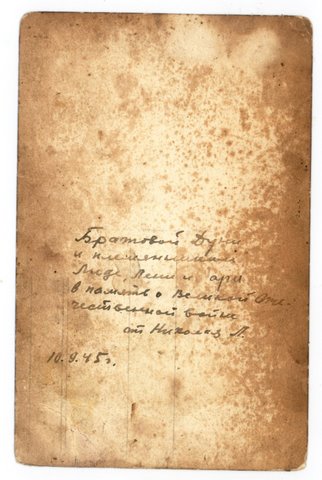 Братовой Дуни
и племянникам
Лиде Лени и
в память о Великой Оте-
чественной войне
от Николая Л.
10.9.45г.